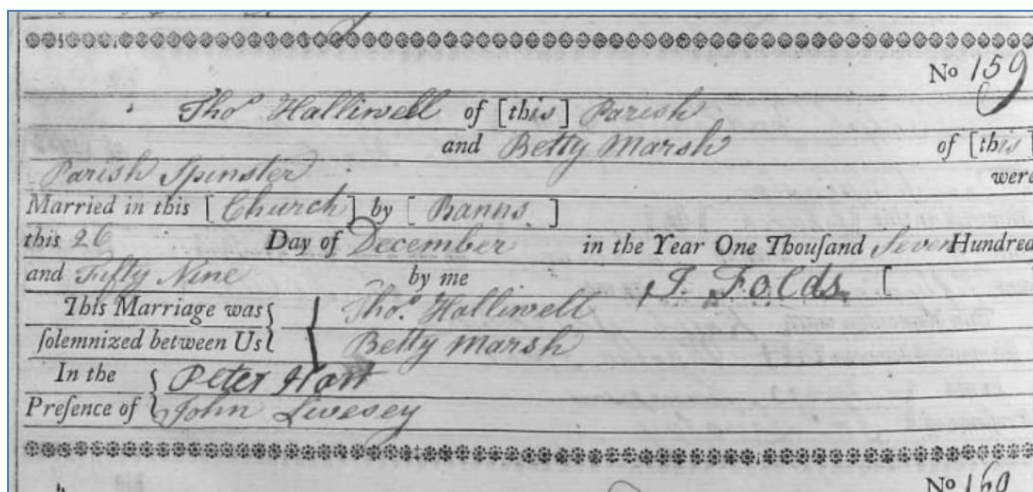 No 159
Tho.s Halliwell of [this] Parish
and Betty Marsh of [this]
Parish Spinster were
Married in this [Church] by [Banns]
this 26 Day of December in the Year One Thouſand Seven Hundred
and Fifty Nine by me J. Folds. [
This Marriage was { Tho.s Halliwell
ſolemnized between Us { Betty Marsh
In the { Peter Hart
Preſence of { John Livesey
No 160